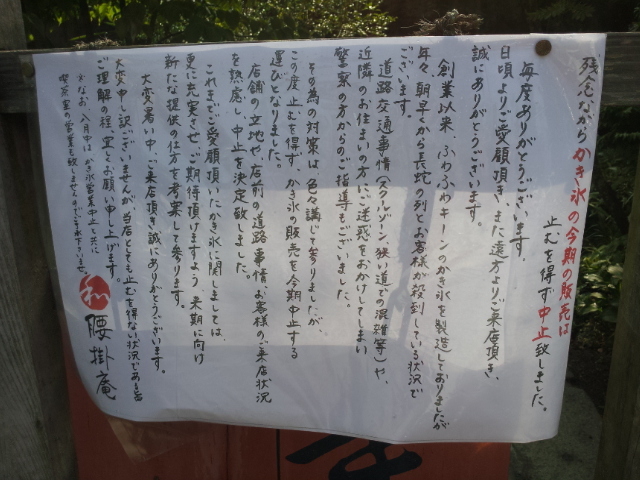 残念ながらかき氷の今期の販売は
止むを得ず中止致しました。
毎度ありがとうございます。
日頃よりご愛願頂き、また遠方よりご来店頂き、
誠にありがとうございます。
創業以来、ふわふわキーンのかき氷を製造しておりましたが
年々、朝早から長蛇の列とお客様が殺到している状況で
ございます。
道路交通事情(スクールゾーン、狭い道での混雑等)や、
近隣のお住まいの方にご迷惑をおかけしてしまい
警察の方からのご指導もございました。
その為の対策は、色々講じて参りましたが、
この度止むを得ず、かき氷の販売を今期中止する
運びとなりました。
店舗の立地や店前の道路事情、お客様のご来店状況
を熟慮し、中止を決定致しました。
これまでご愛顧頂いたかき氷に関しましては、
更に充実させ、ご期待頂けますよう、来期に向け
新たな提供の仕方を考案して参ります。
大変暑い中、ご来店頂き誠にありがとうございます。
大変申し訳ございませんが、当店とても止むを得ない状況である旨
ご理解の程、宜しくお願い申し上げます。
※なお、八月中はかき氷営業中止と共に
喫茶室の営業も致しませんのでご了承下さいませ。
和 腰掛庵